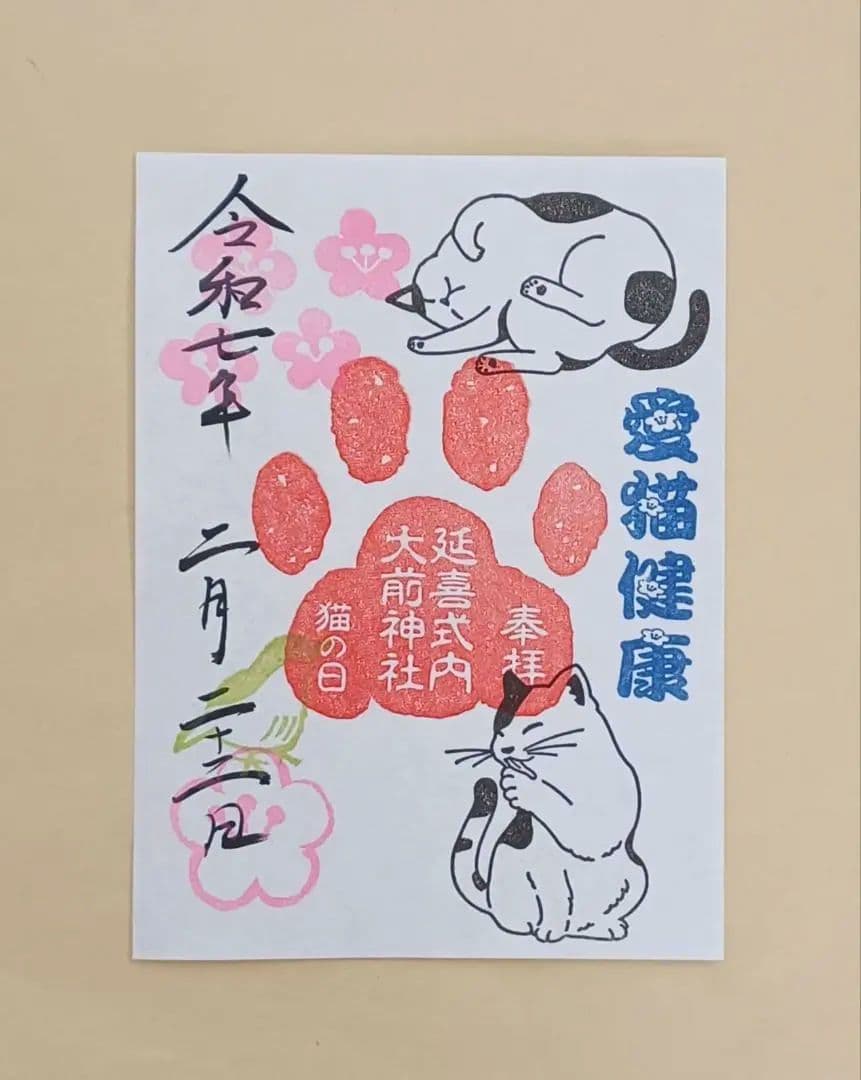 愛猫健康
奉拝
延喜式内
大前神社
猫の日
令和七年 二月 二十二日